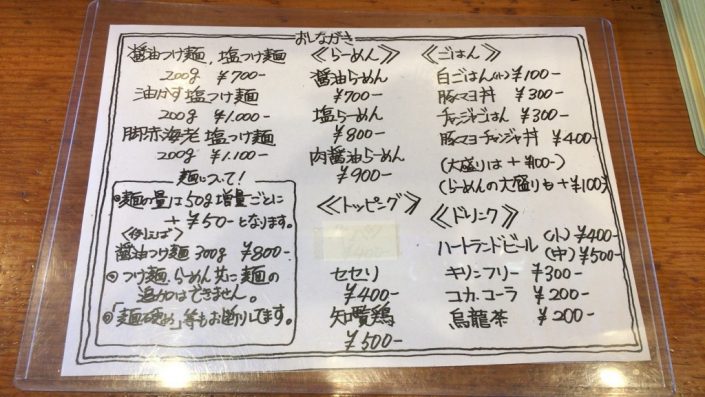 おしながき
醤油つけ麺、塩つけ麺
200g ¥700-
油かす塩つけ麺
200g ¥1.000-
脚赤海老塩つけ麺
200g ¥1.100-
麺について!
麺の量は50g増量ごとに
+¥50-となります。
<例えば>
醤油つけ麺300g ¥800-
つけ麺、らーめん共に麺の
追加はできません。
「麺硬め」等もお断りしてます。
《らーめん》
醤油らーめん
¥700-
塩らーめん
¥800-
肉醤油らーめん
¥900-
《トッピング》
セセリ
¥400-
知覧鶏
¥500-
《ごはん》
白ごはん(小)¥100-
豚マヨ丼 ¥300-
チャンジャごはん ¥300-
豚マヨチャンジャ丼 ¥400-
(大盛りは+¥100-)
(らーめんの大盛りも+¥100)
《ドリンク》
ハートランドビール (小)¥400-
(中)¥500-
キリンフリー ¥300-
コカ.コーラ ¥200-
烏龍茶 ¥200-